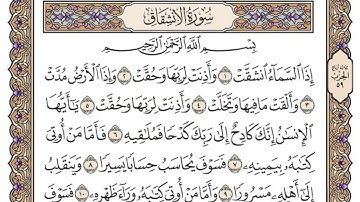 سُورَةُ الانشِقَاقِ
بِسْمِ اللَّهِ الرَّحْمَٰنِ الرَّحِيمِ
إِذَا السَّمَاءُ انشَقَّتْ ١ وَأَذِنَتْ لِرَبِّهَا وَحُقَّتْ ٢ وَإِذَا الْأَرْضُ مُدَّتْ
٣ وَأَلْقَتْ مَا فِيهَا وَتَخَلَّتْ ٤ وَأَذِنَتْ لِرَبِّهَا وَحُقَّتْ ٥ يَا أَيُّهَا
الْإِنسَانُ إِنَّكَ كَادِحٌ إِلَىٰ رَبِّكَ كَدْحًا فَمُلَاقِيهِ ٦ فَأَمَّا مَنْ أُوتِيَ
كِتَابَهُ بِيَمِينِهِ ٧ فَسَوْفَ يُحَاسَبُ حِسَابًا يَسِيرًا ٨ وَيَنقَلِبُ
إِلَىٰ أَهْلِهِ مَسْرُورًا ٩ وَأَمَّا مَنْ أُوتِيَ كِتَابَهُ وَرَاءَ ظَهْرِهِ ١٠ فَسَوْفَ
الحزب
٥٩